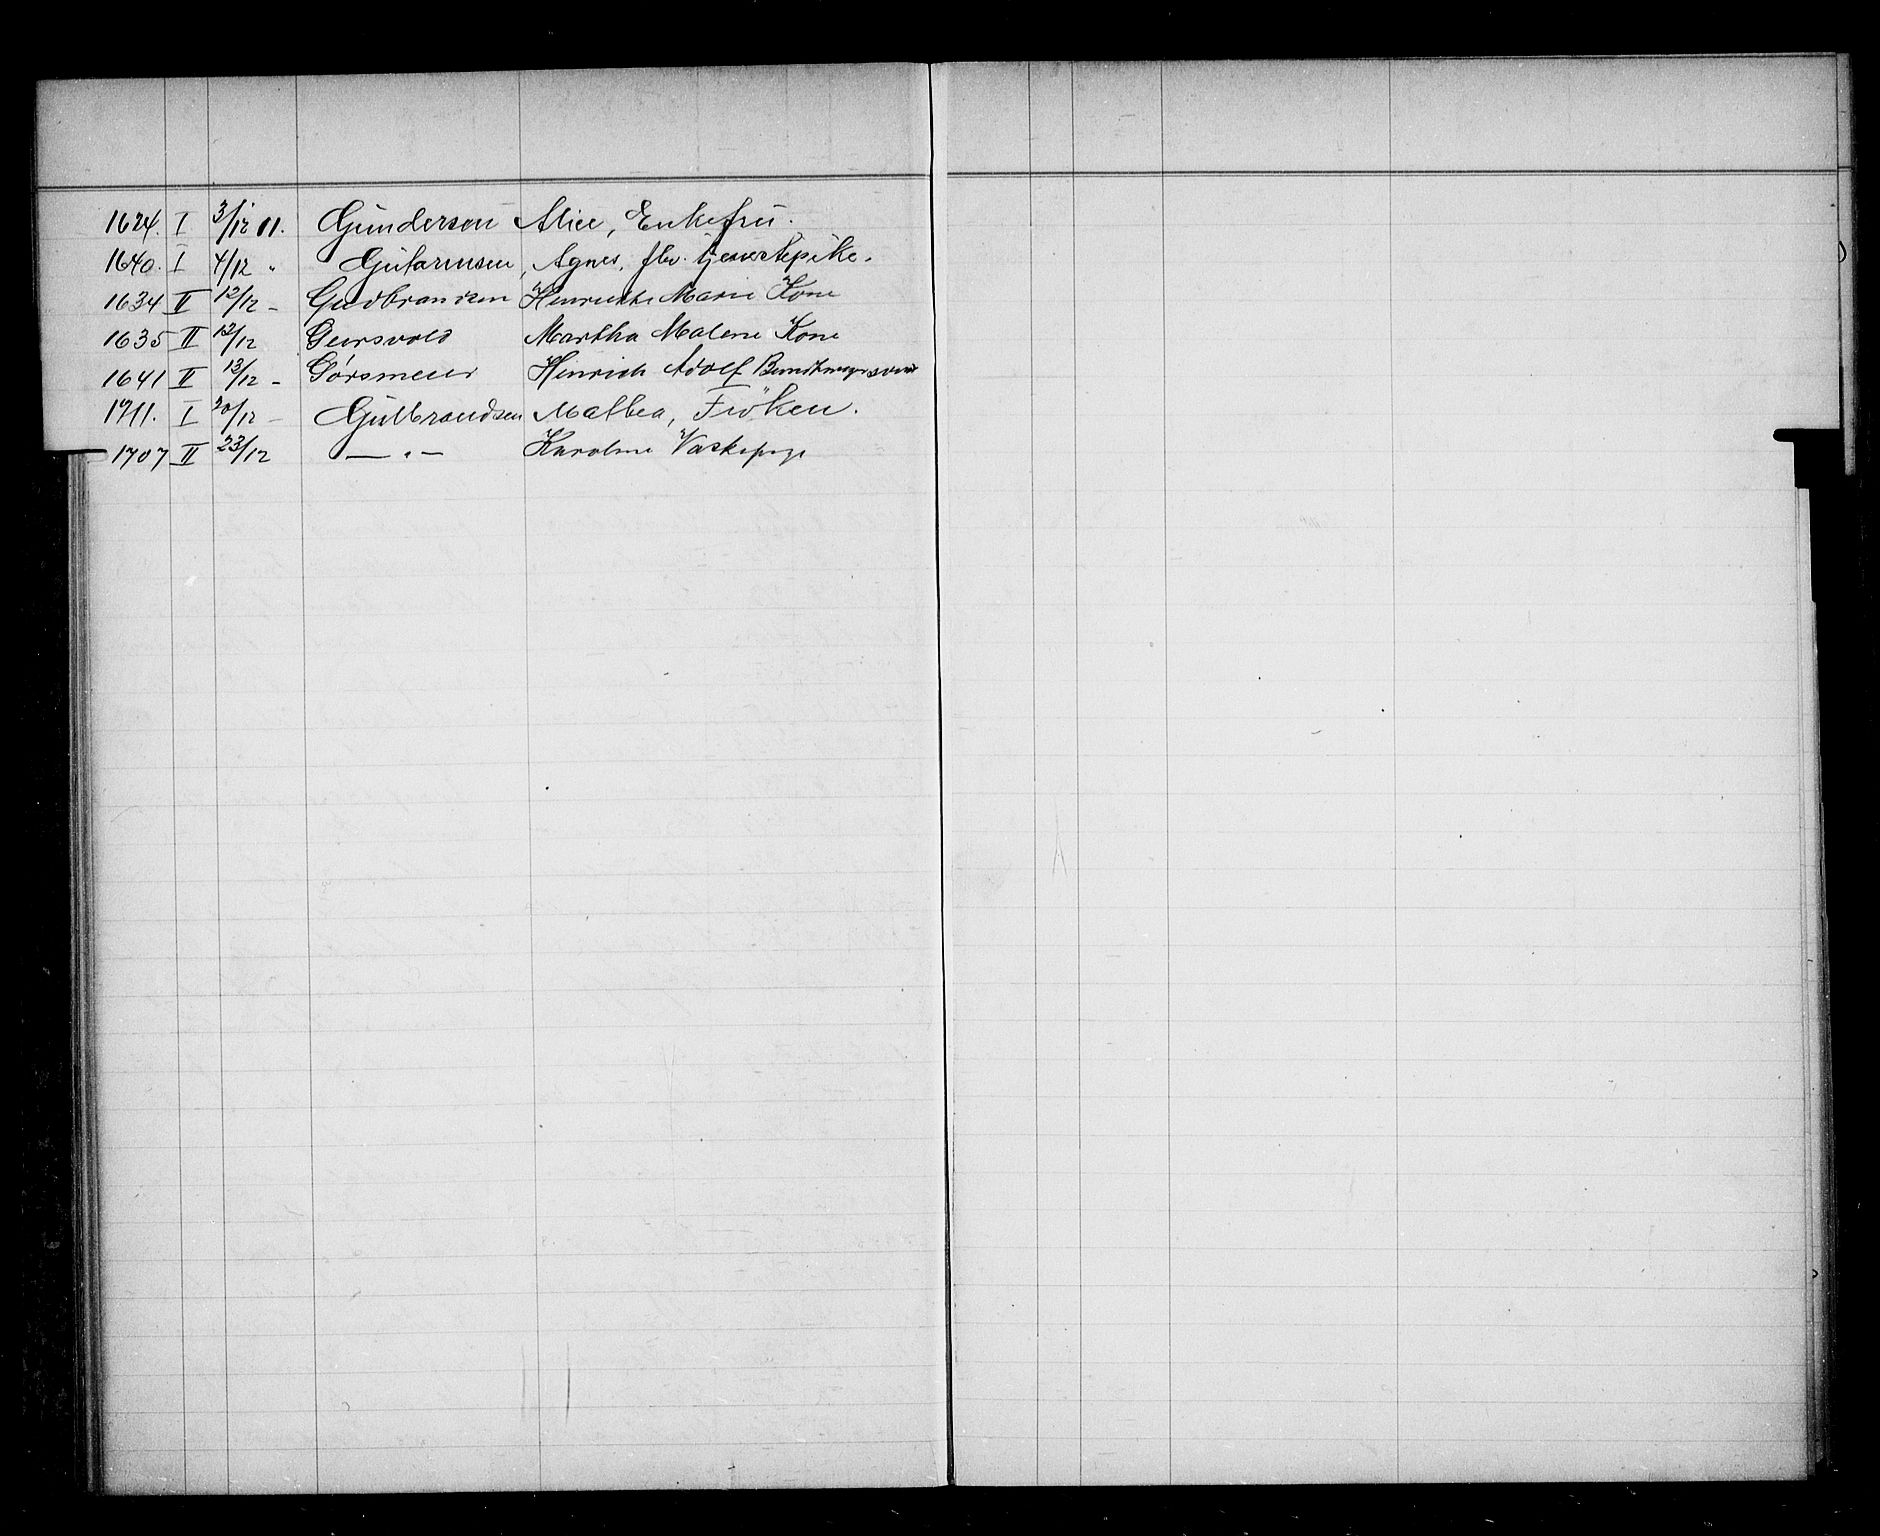 1624. I 3/12 11. Gundersen Alice, Enkefru.
1640. I 4/12 " Gutormsen, Agnes, flv. tjenestepike.
1634 II 12/12 - Gudbrandsen Henriette Marie Kone
1635 II 12/12 Martha Malene Kone
1641 II 13/12 - Görsmeier Hinrich Adolf
1711. I 20/12 - Gulbrandsen Mathea, Fröken.
1707 II 23/12 — " — Karoline Vaskepige